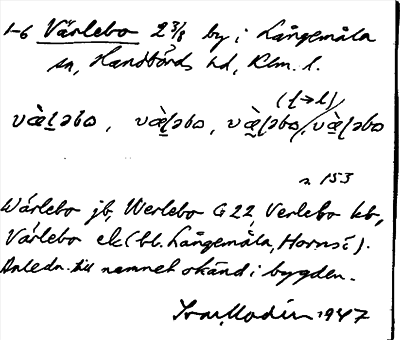 1-6 Värlebo 2 3/8 by i Långemåla
sn, Handbörds hd, Klm. l.
(ɭ→l)
væ̀ɭəbo, væ̀ɭəbo, væ̀ɭəbo/væ̀ɭəbo
s. 153
Wärlebo jb, Werlebo G 22, Verlebo kb,
Värlebo ek (bl. Långemåla, Hornsö).
Anledn. till namnet okänd i bygden.
Ivar Modéer 1947